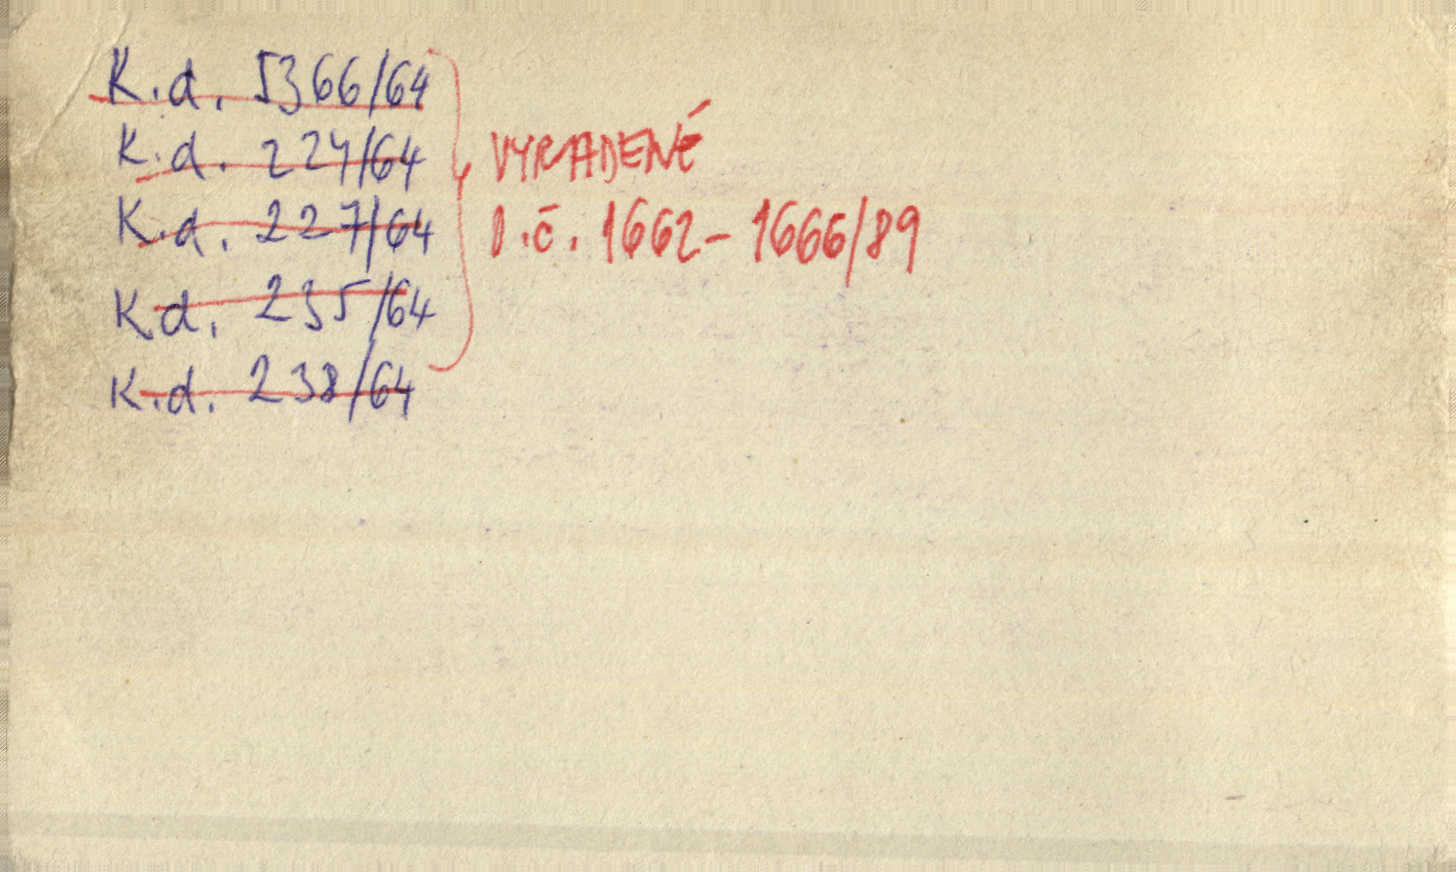 K.d. 5366/64
K.d. 224/64
K.d. 227/64
K.d. 235/64
K.d. 238/64
VYRADENÉ
1.č. 1662-1666/89